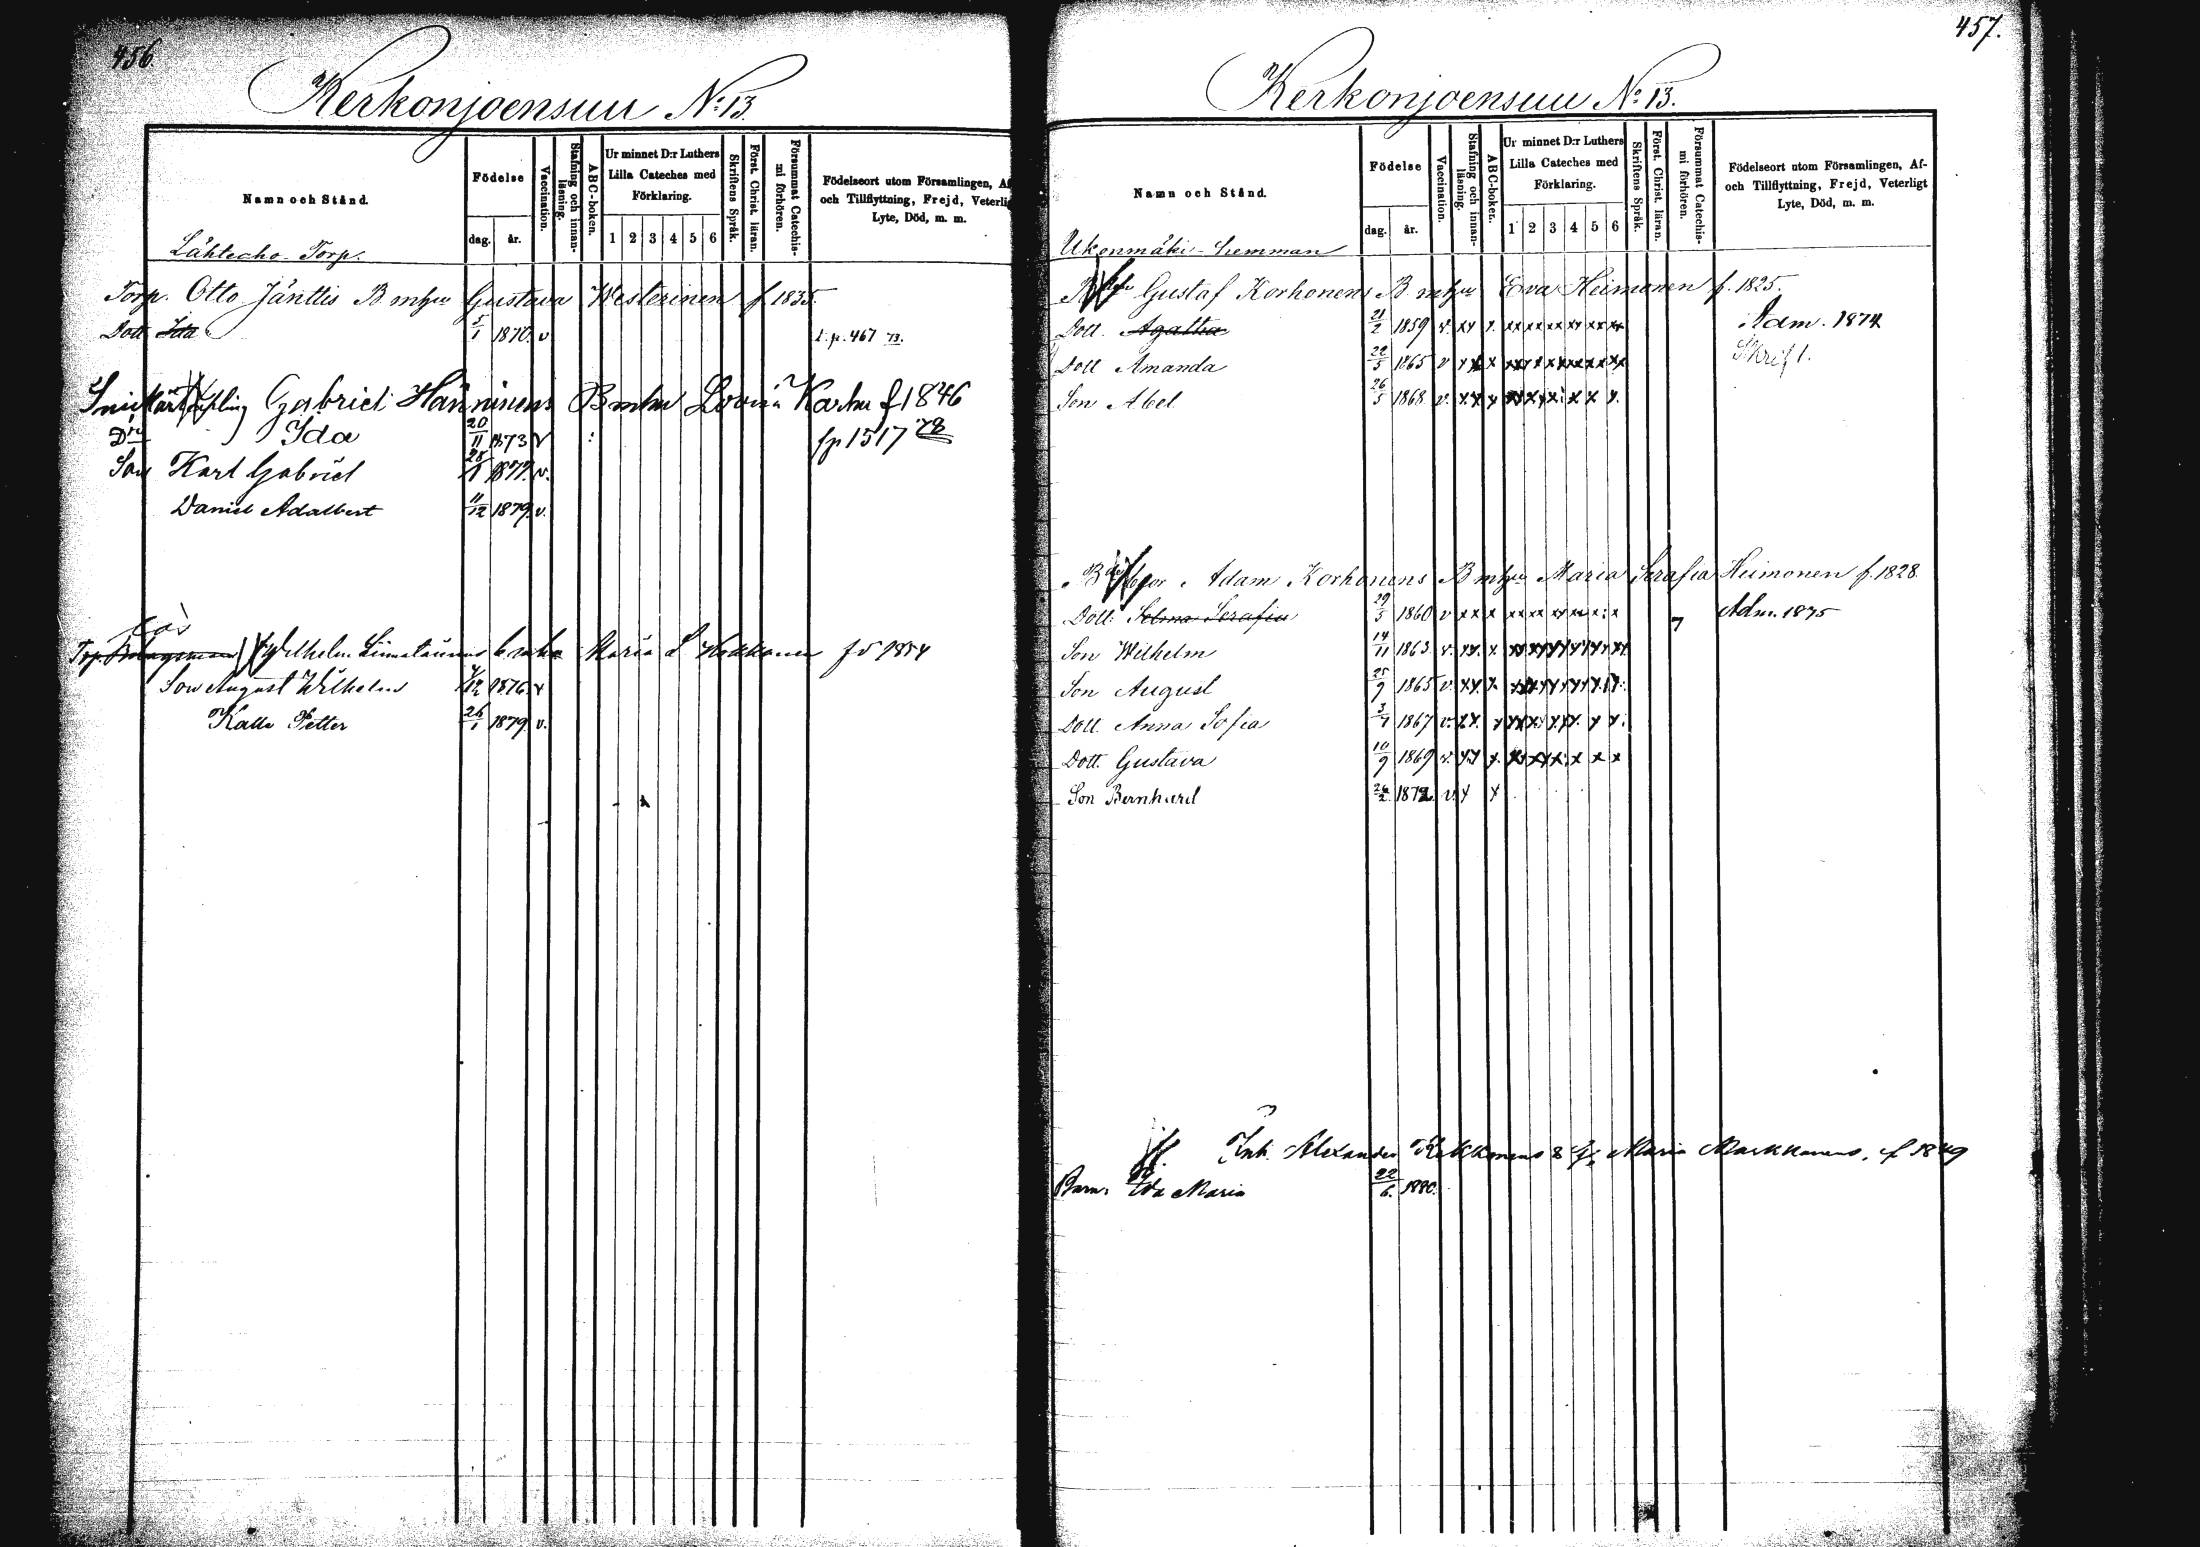 456.
Kerkonjoensuu No 13.
Namn och Stånd.
Födelse
dag. år.
Vaccination.
Stafning och innanläsning.
ABC-boken.
Ur minnet D:r Luthers
Lilla Cateches med
Förklaring.
1 2 3 4 5 6
Skriftens Språk.
Först. Christ. läran.
Försummat Catechismi förhören.
Födelseort utom Församlingen, Af
och Tillflyttning, Frejd, Veterligt
Lyte, Död, m. m.
Torp.
Torp. Otto Jänttis B mhu Gustava Westerinen f. 1835.
Dott. Ida 5/1 1870. v I. p. 467 73.
Gabriel Hänninens B mhu Lovisa Karhu f 1846
Ida 20/11 1873 v fp 1517 78
Son Karl Gabriel 28/1 1877. v.
Daniel Adalbert 11/12 1879. v.
Maria L f 1854
Son August Wilhelm 1876. v
Kalle Petter 26/1 1879. v.
457.
Kerkonjoensuu No 13.
Namn och Stånd.
Födelse
dag. år.
Vaccination.
Stafning och innanläsning.
ABC-boken.
Ur minnet D:r Luthers
Lilla Cateches med
Förklaring.
1 2 3 4 5 6
Skriftens Språk.
Först. Christ. läran.
Försummat Catechismi förhören.
Födelseort utom Församlingen, Af-
och Tillflyttning, Frejd, Veterligt
Lyte, Död, m. m.
Ukonmäki - hemman
Gustaf Korhonens B mhu Eva Heimonen f. 1825.
Dott. Agatha 21/2 1859 v. xx x. xx xx xx xx xx xx Adm. 1874
Dott Amanda 22/5 1865 v x x x xx x x x x x x x x x x Skrift.
Son Abel 26/5 1868. v. x x x x x x x x x x.
Adam Korhonens B mhu Maria Serafia Heimonen f. 1828.
Dott. Selma Serafia 29/5 1860 v xx x xx xx xx xx x: x 7 Adm. 1875
Son Wilhelm 14/11 1863. v. xx. x xx xx xx xx xx xx
Son August 25/9 1865 v. xx. x. xx xx xx xx xx
Dott. Anna Sofia 3/7 1867 v. xx. x xx x. x x x. x x.
Dott. Gustava 10/9 1869 v. xx x. xx xx x. x x x
Son Bernhard 26/2 1872. v. x x
Inh. Alexander Kekkonens & h. Maria Markkanens, f 1849
Barn: Ida Maria 22/6. 1880.